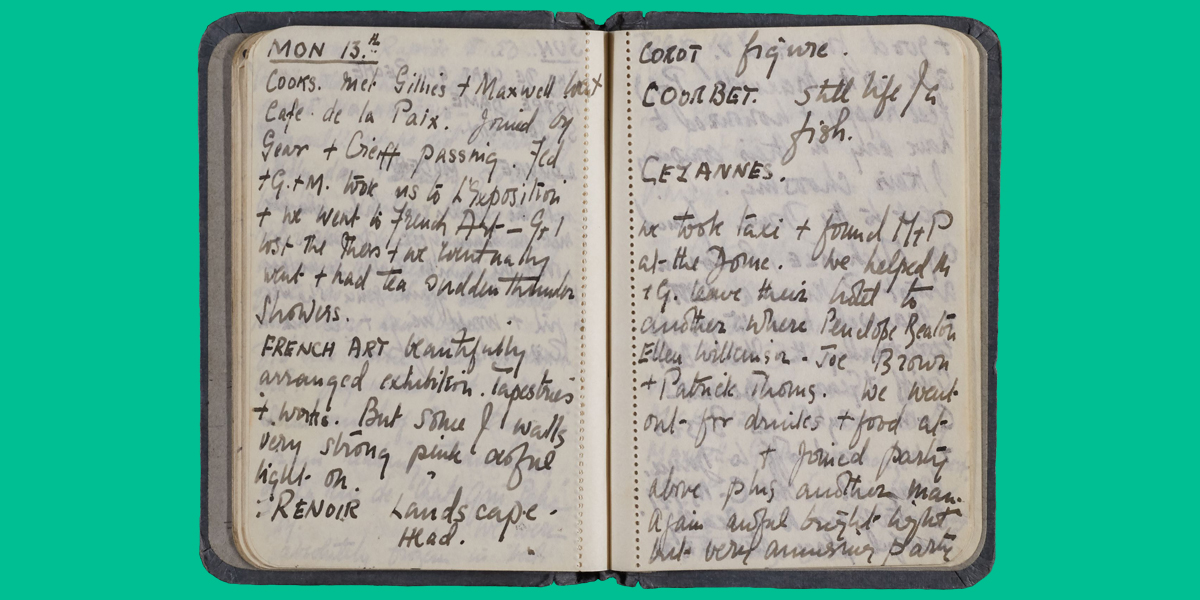 MON 13.th
COOKS. Met Gillies + Maxwell
Cafe de la Paix. Joined by
Gear + Crieff passing.
+G.+M. took us to L'Exposition
+ we went to French Art — G + I
lost the others + we eventually
went + had tea sudden thunder
showers.
FRENCH ART beautifully
arranged exhibition. Tapestries
+ works. But some of walls
very strong pink awful
light on.
: RENOIR Landscape.
Head.
COROT figure.
COURBET. Still life of a
fish.
CEZANNES.
we took taxi + found M+P
at the Dome. We helped M
+G. leave their hotel to
another where Penelope Beaton
Ellen Wilkinson. Joe Brown
+ Patrick Thoms. We went
out for drinks + food at
+ joined party
above plus another man.
Again awful bright light
but very amusing party